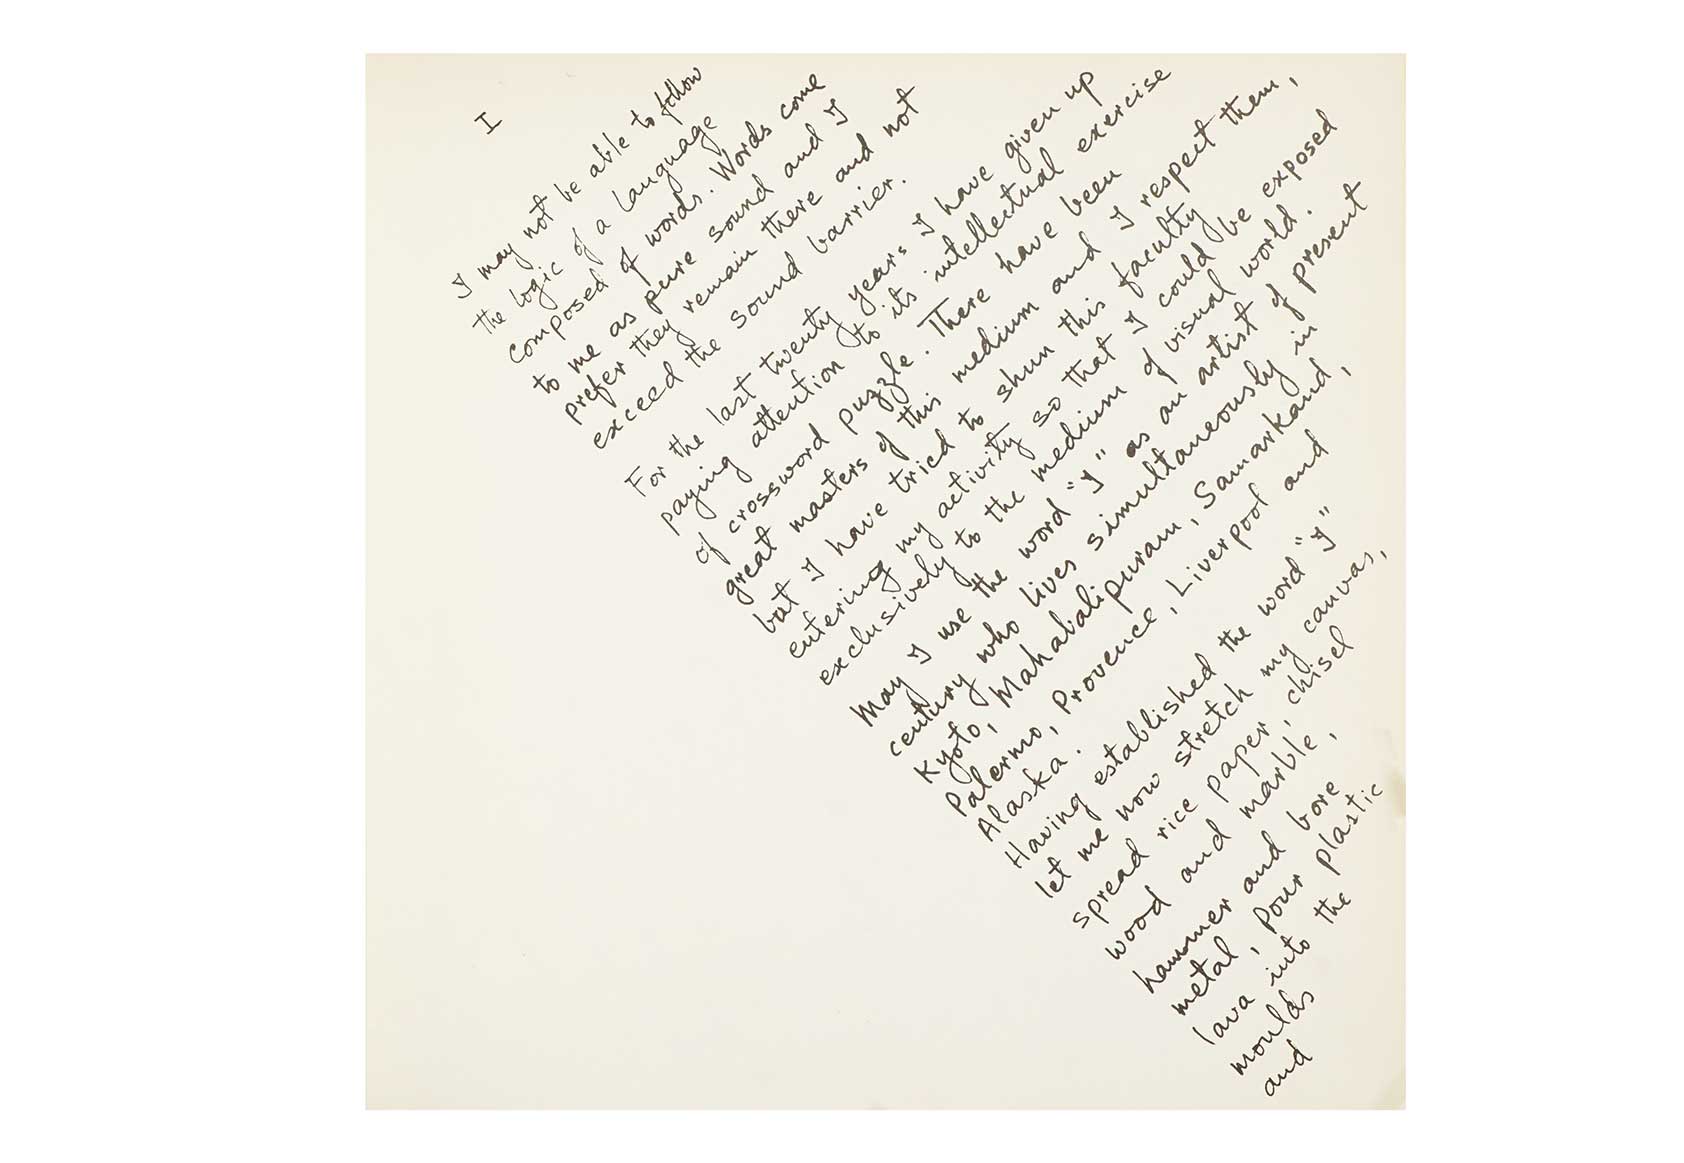 I
I may not be able to follow
the logic of a language
composed of words. Words come
to me as pure sound and I
prefer they remain there and not
exceed the sound barrier.
For the last twenty years I have given up
paying attention to its intellectual exercise
of crossword puzzle. There have been
great masters of this medium and I respect them,
but I have tried to shun this faculty
entering my activity so that I could be exposed
exclusively to the medium of visual world.
May I use the word "I" as an artist of present
century who lives simultaneously in
Kyoto, Mahabalipuram, Samarkand,
Palermo, Provence, Liverpool and
Alaska.
Having established the word "I"
let me now stretch my canvas,
spread rice paper, chisel
wood and marble,
hammer and bore
metal, pour plastic
lava into the
moulds
and